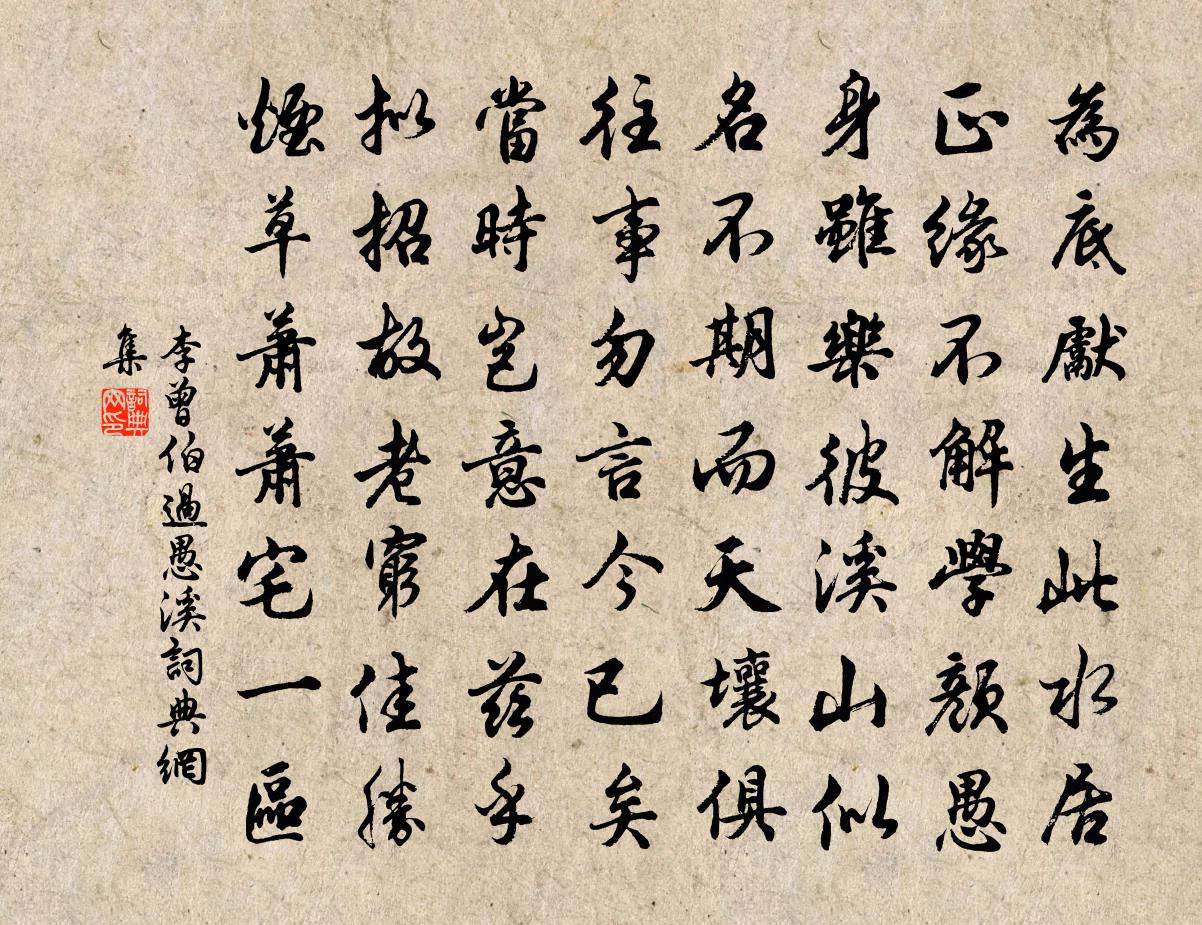 為底獻生此水居
正緣不解學顏愚
身雖樂彼溪山似
名不期而天壤俱
往事勿言今已矣
當時豈意在茲乎
拟招故老窮佳勝
煙草萧萧宅一區
李曾伯過愚溪詞典網
集
詞典
网印